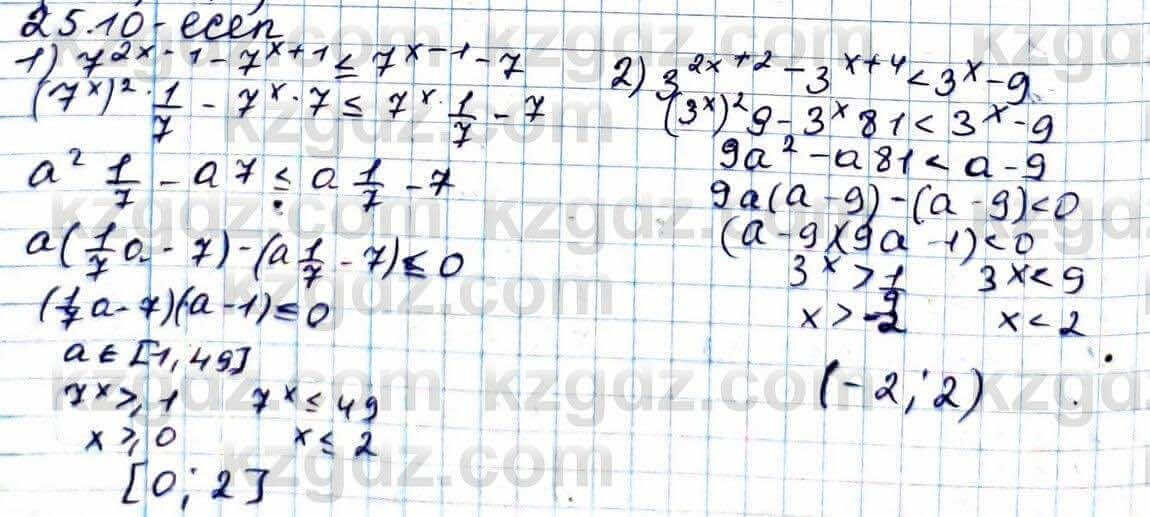 25.10-есеп
1) 7^{2x-1} - 7^{x+1} ≤ 7^{x-1} - 7
(7^x)^2 · 1/7 - 7^x · 7 ≤ 7^x · 1/7 - 7
a^2 1/7 - a7 ≤ a 1/7 - 7
a(1/7 a - 7) - (a 1/7 - 7) ≤ 0
(1/7 a - 7)(a - 1) ≤ 0
a ∈ [1, 49]
7^x ≥ 1 7^x ≤ 49
x ≥ 0 x ≤ 2
[0; 2]
2) 3^{2x+2} - 3^{x+4} < 3^x - 9
(3^x)^2 9 - 3^x 81 < 3^x - 9
9a^2 - a81 < a - 9
9a(a - 9) - (a - 9) < 0
(a - 9)(9a - 1) < 0
3^x > 1/9 3^x < 9
x > -2 x < 2
(-2; 2)
kzgdz.com